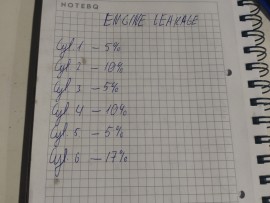 NOTEBO
ENGINE LEAKAGE
Cyl 1 — 5%
Cyl 2 — 10%
Cyl 3 — 5%
Cyl 4 — 10%
Cyl 5 — 5%
Cyl 6 — 17%